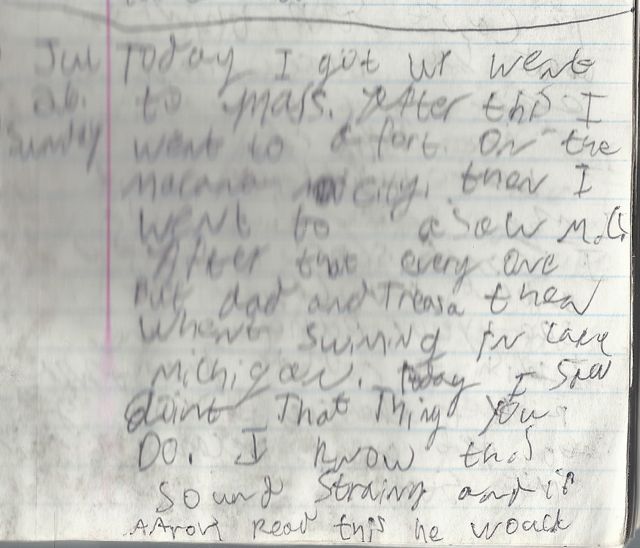 Jul Today I got up went
26. to mass. After this I
Sunday went to a fort. On the
macana city. then I
went to a Saw Mill
After that every one
But dad and Treasa then
Whent Swiming in Lake
Michigan. Today I Saw
That Thing You
Do. I know this
Sound Strainy and if
AAron Read this he woack